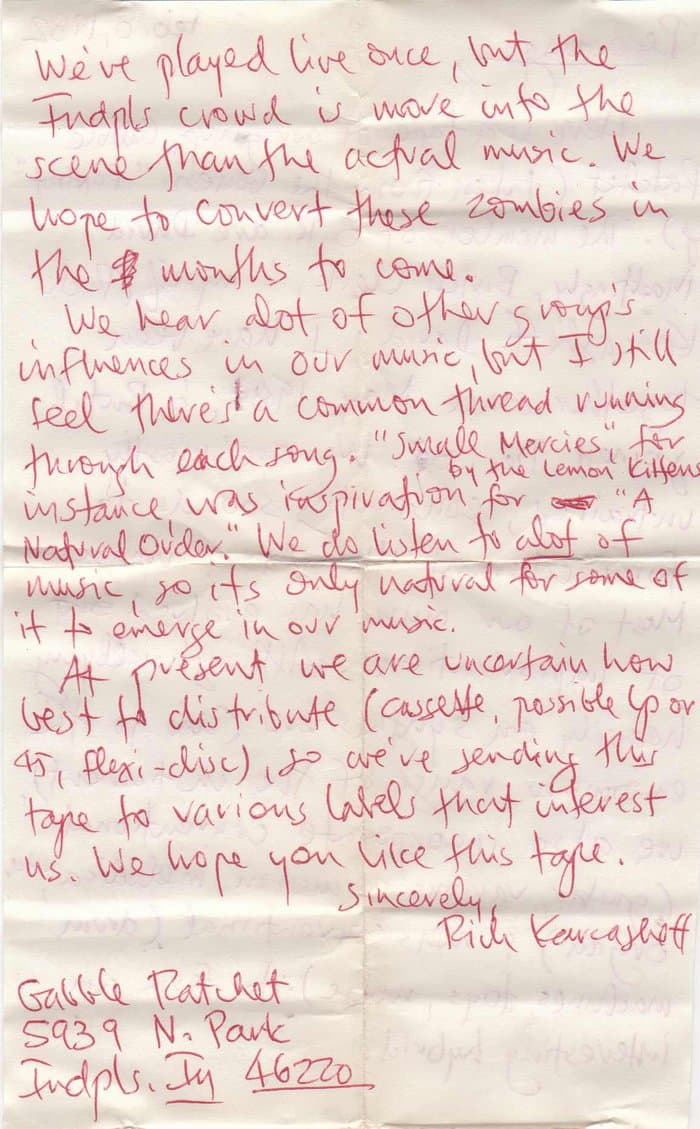 We've played live once, but the
Indpls crowd is more into the
scene than the actual music. We
hope to convert these zombies in
the months to come.
We hear alot of other group's
influences in our music, but I still
feel there's a common thread running
through each song. "Small Mercies", for
by the Lemon Kittens
instance, was inspiration for "A
Natural Order." We do listen to alot of
music, so its only natural for some of
it to emerge in our music.
At present we are uncertain how
best to distribute (cassette, possible Lp or
45, flexi-disc), so we've sending this
tape to various labels that interest
us. We hope you like this tape.
Sincerely,
Rich
Gabble Ratchet
5939 N. Park
Indpls. In 46220